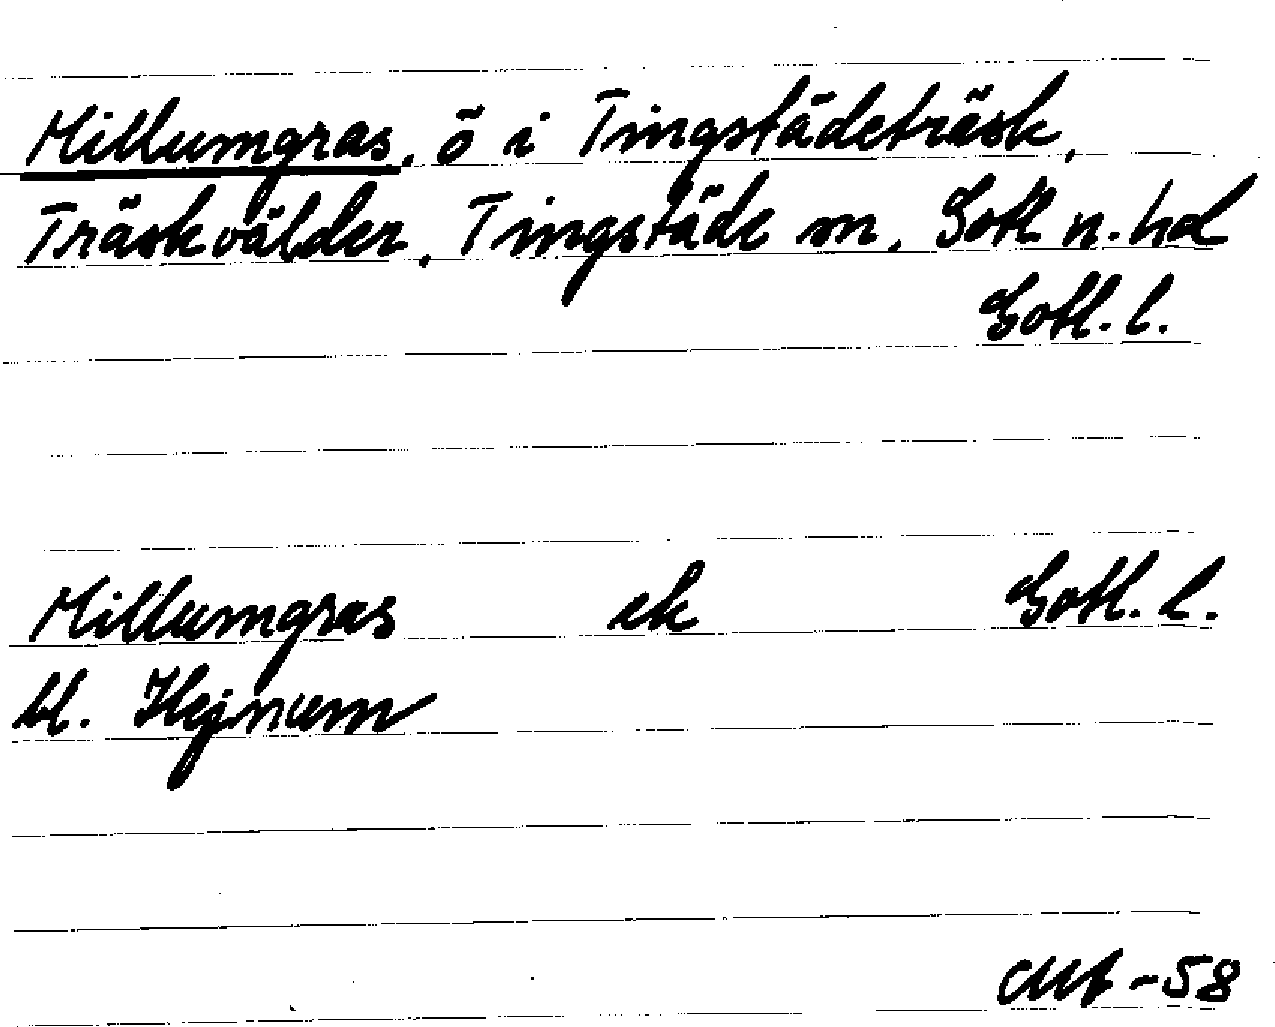 Millumgras, ö i Tingstädeträsk,
Träskvälder, Tingstäde sn, Gotl n. hd
Gotl. l.
Millumgras ek Gotl. l.
bl. Hejnum
-58